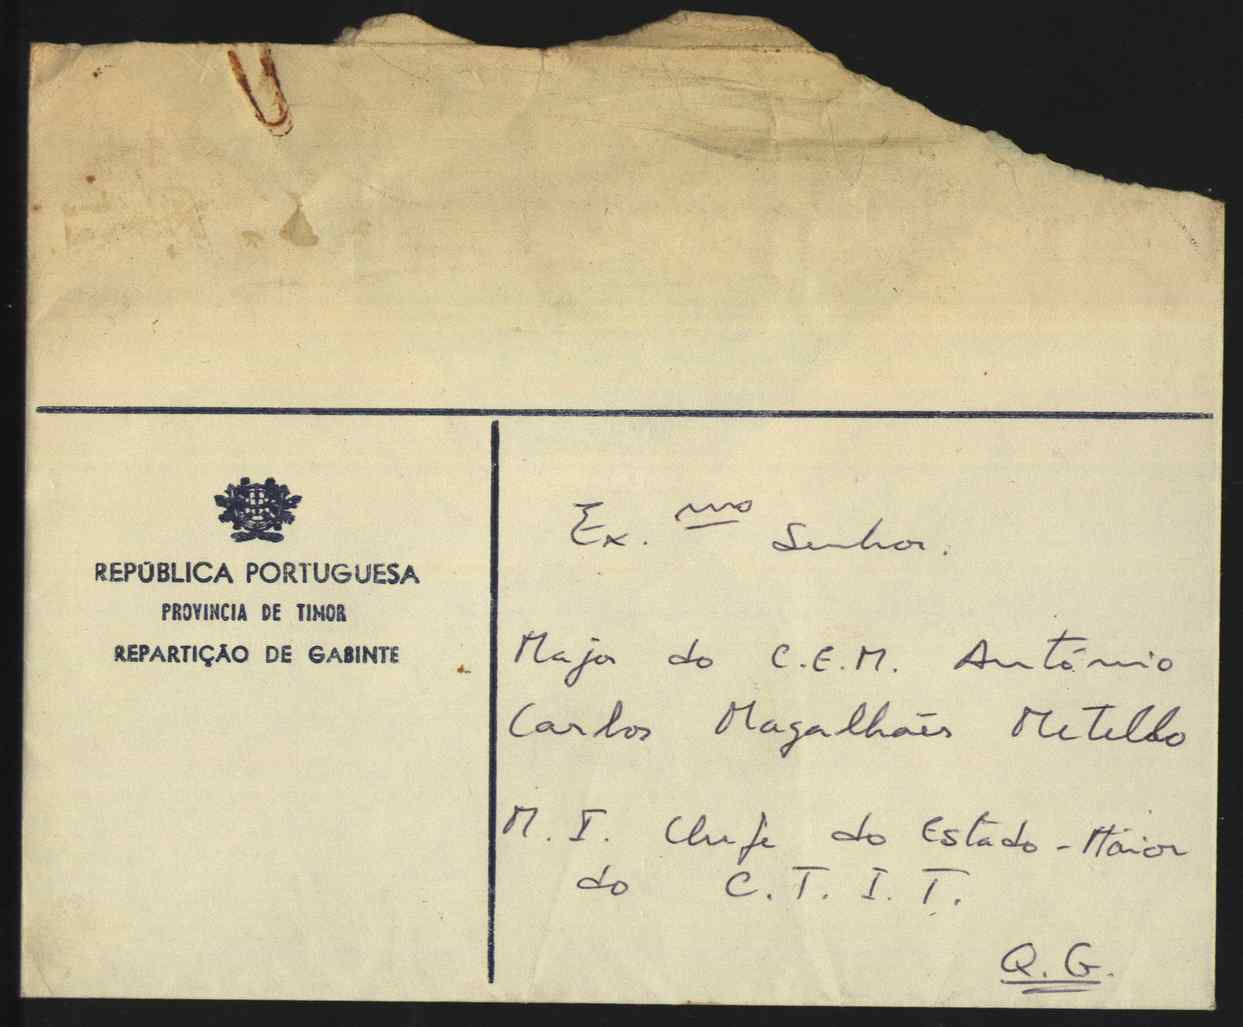 REPÚBLICA PORTUGUESA
PROVINCIA DE TIMOR
REPARTIÇÃO DE GABINTE
Ex.mo Senhor.
Major do C.E.M. António
Carlos Magalhães Metello
M. I. Chefe do Estado-Maior
do C. T. I. T.
Q. G.